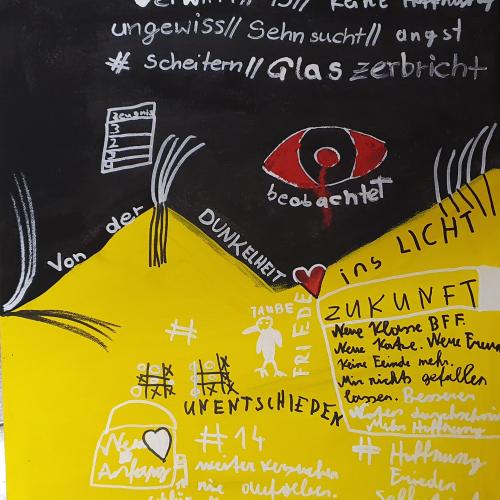 keine Hoffnung
ungewiss// Sehnsucht// angst
# Scheitern// Glas zerbricht
Zeugnis
3
3
2
beobachtet
Von der DUNKELHEIT ins LICHT
ZUKUNFT
Neue Klasse BFF.
Neue Katze. Neue
Keine Feinde mehr.
Mir nichts gefallen
lassen. Besserer
Mehr Hoffnung
TAUBE
FRIEDE
#
UNENTSCHIEDEN
Neu
Anfang
#14
weiter versuchen
nie aufgeben.
# Hoffnung
Frieden